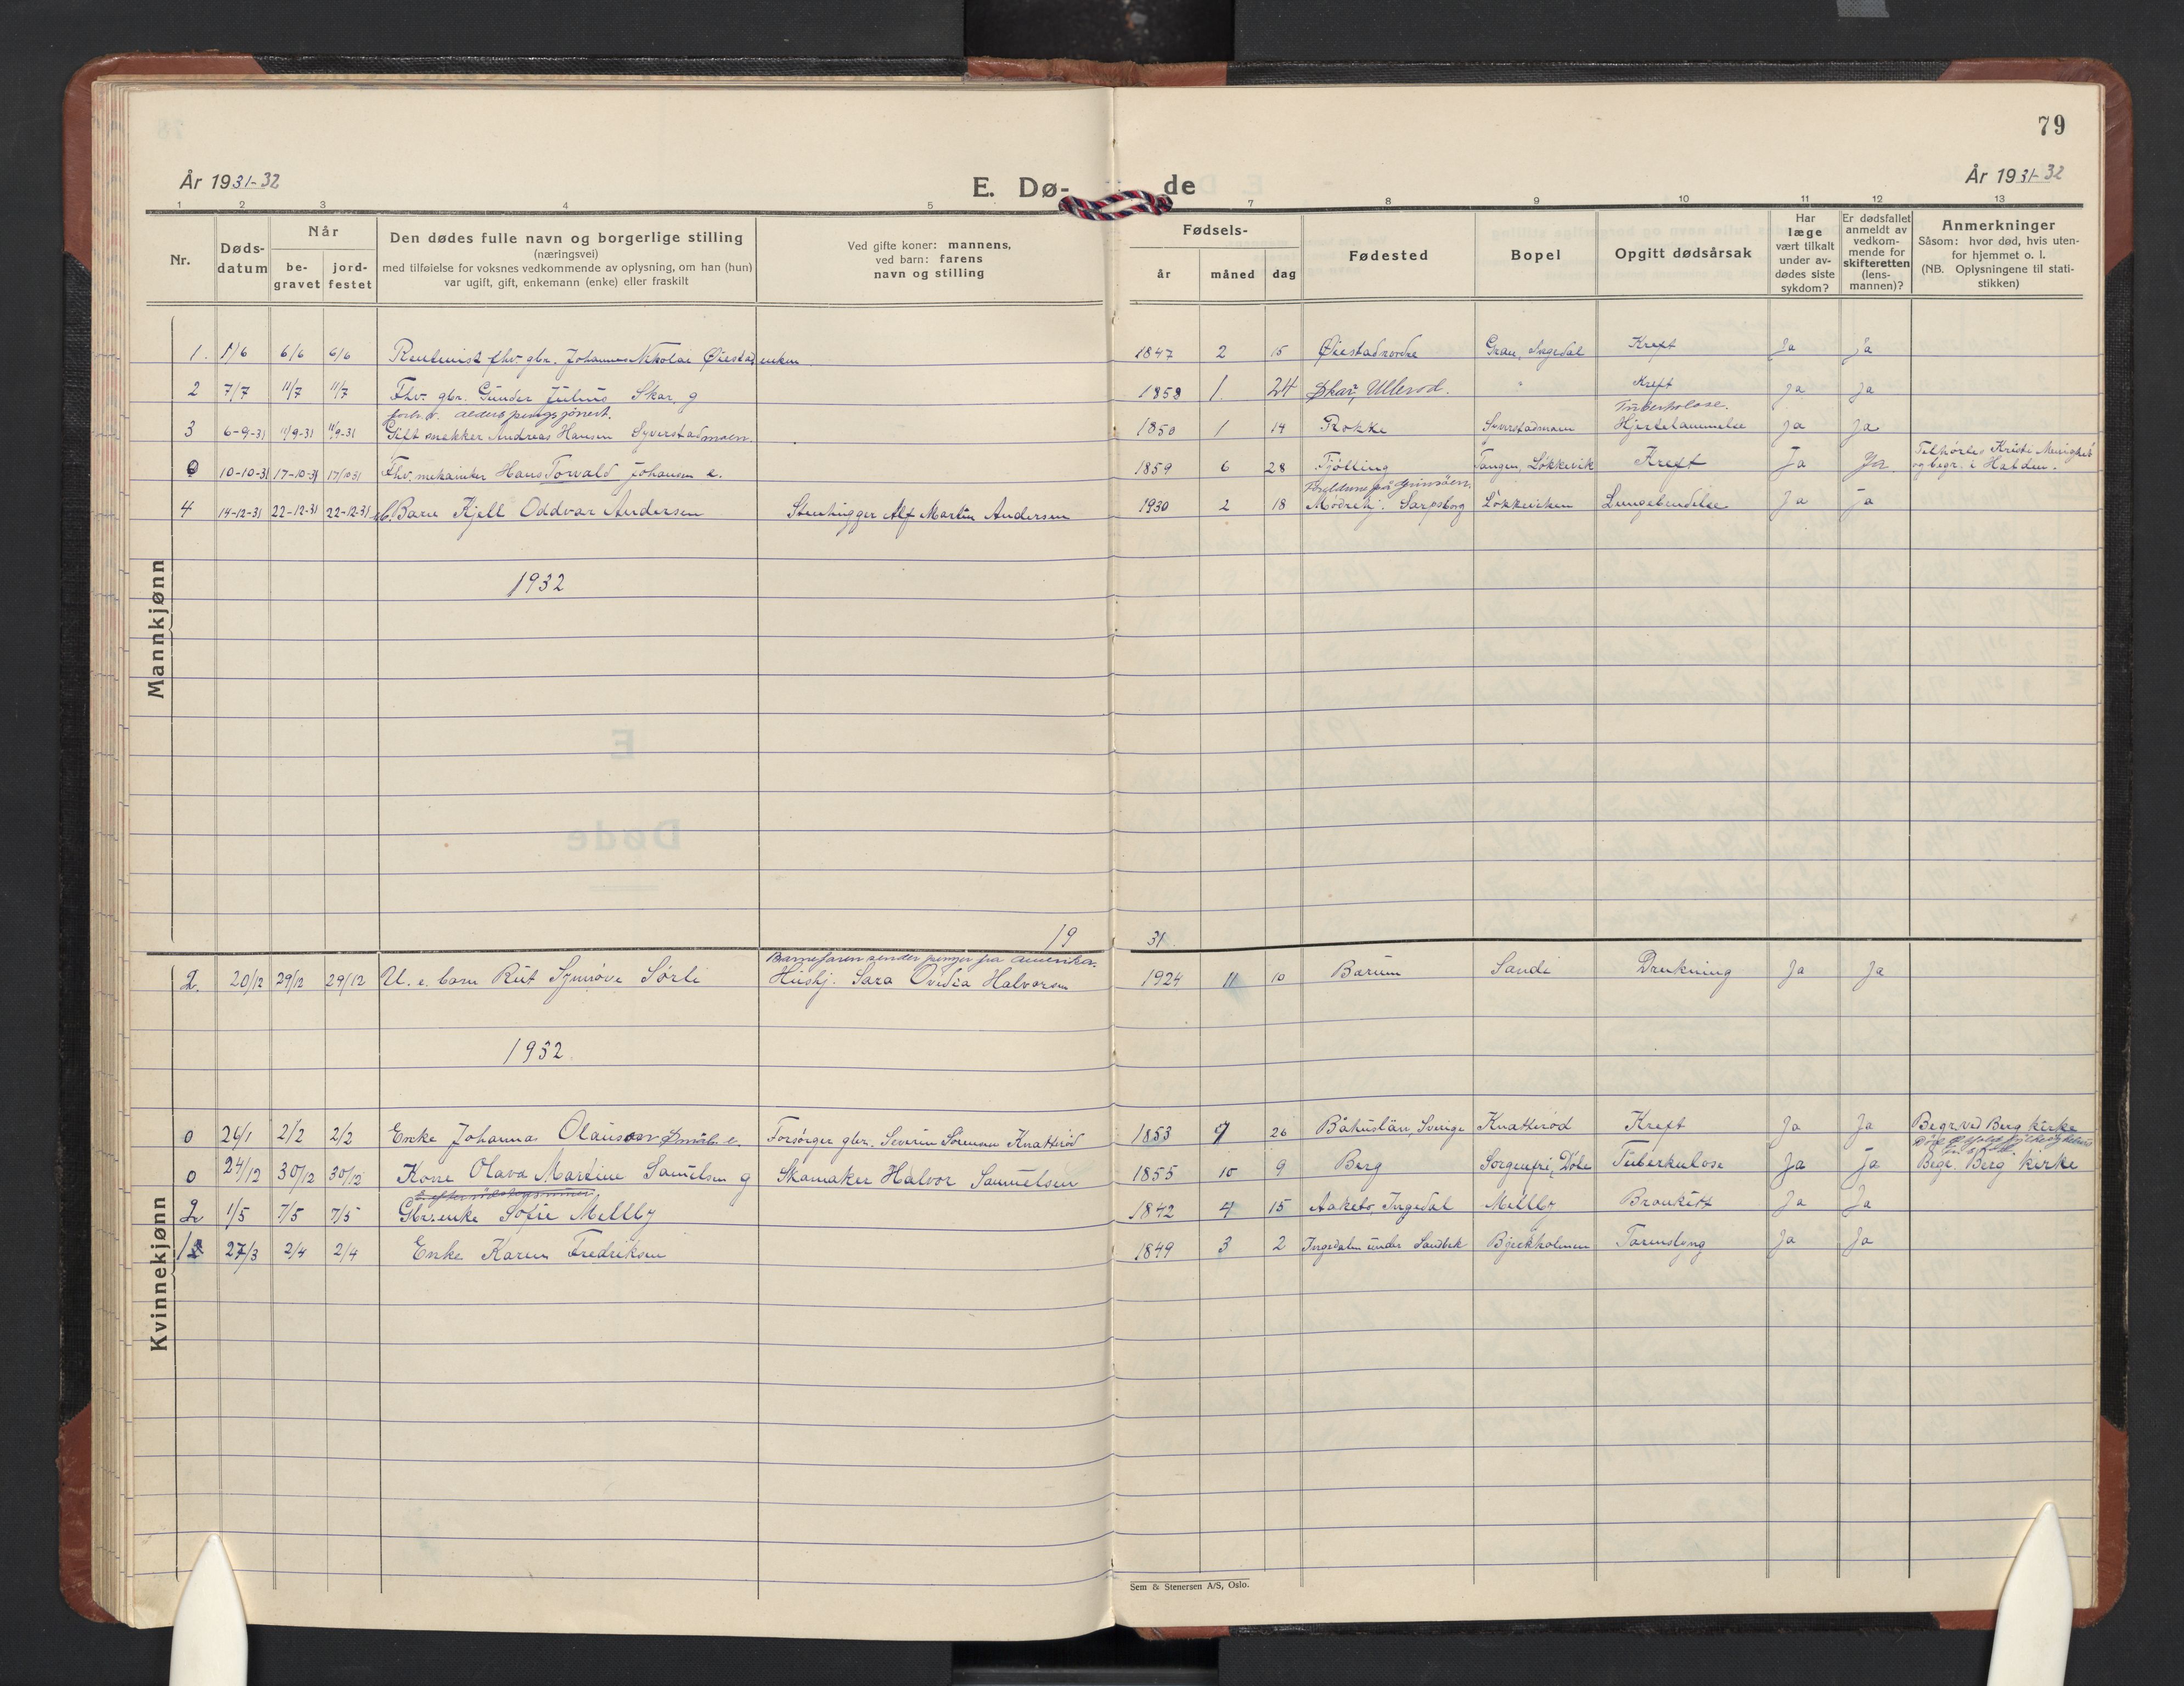 79
År 1931-32
E. Dø-
de
År 1931-32
1 2 3 4 5 7 8 9 10 11 12 13
Nr.
Døds-
datum
Når
be-
gravet
jord-
festet
Den dødes fulle navn og borgerlige stilling
(næringsvei)
med tilføielse for voksnes vedkommende av oplysning, om han (hun)
var ugift, gift, enkemann (enke) eller fraskilt
Ved gifte koner: mannens,
ved barn: farens
navn og stilling
Fødsels-
år
måned
dag
Fødested
Bopel
Opgitt dødsårsak
Har
læge
vært tilkalt
under av-
dødes siste
sykdom?
Er dødsfallet
anmeldt av
vedkom-
mende for
skifteretten
(lens-
mannen)?
Anmerkninger
Såsom: hvor død, hvis uten-
for hjemmet o. l.
(NB. Oplysningene til stati-
stikken)
Mannkjønn
1. 1/6 6/6 6/6 Rentenist fhv. gbr. Johannes Nikolai Øiestad enkem 1847 2 15 Øiestad nordre Grau, Ingedal Kreft Ja ja
2 7/7 11/7 11/7 Fhv. gbr. Gunder Julius Skar, g 1858 1. 24 Skar, Ullerod. " Kreft ja ja
forh.v. alderspensjonert. Tuberkolose.
3 6-9-31 11/9-31 11/9-31 Gilt snekker Andreas Hansen Syverstadmoen. 1850 1 14 Rokke Syverstadmoen Hjertelammelse ja ja
0 10-10-31 17-10-31 17/10 31 Fhv. mekaniker Hans Torvald Johansen e. 1859 6 28 Tjølling Tangen, Løkkevik Kreft Ja Ja Tilhørte Kristi Menighet
og begr. i Halden.
Foreldrene på Grimsøen.
4 14-12-31 22-12-31 22-12-31 Barn Kjell Oddvar Andersen Stenhugger Alf Martin Andersen 1930 2 18 Mødrehj. Sarpsborg Løkkevicken Lungebendelse Ja ja
1932
1931
Barnefaren sender penger fra Amerika.
2. 20/12 29/12 29/12 U. e. barn Rut Synnøve Sørli Hushj. Sara Ovedia Halvorsen 1924 11 10 Bærum Sandi Drukning Ja Ja
1932
Kvinnekjønn
0 26/1 2/2 2/2 Enke Johanna Olausson Forsørger gbr. Severin Sørensen Knatterød 1853 7 26 Båhuslän, Sverige Knatterød Kreft Ja Ja Begr. ved Berg kirke
0 24/12 30/12 30/12 Kone Olava Martine Samuelsen g Skomaker Halvor Samuelsen 1855 10 9 Berg Sorgenfri, Døle Tuberkulose Ja Ja Begr. Berg kirke
2 1/5 7/5 7/5 Gbr.enke Sofie Mellby 1842 4 15 Aakebo, Ingedal Mellby Bronkitt Ja Ja
1 27/3 2/4 2/4 Enke Karen Fredriksen 1849 3 2 Ingedalen under Sandbek Bjerkholmen Tarmslyng Ja Ja
Sem & Stenersen A/S, Oslo.